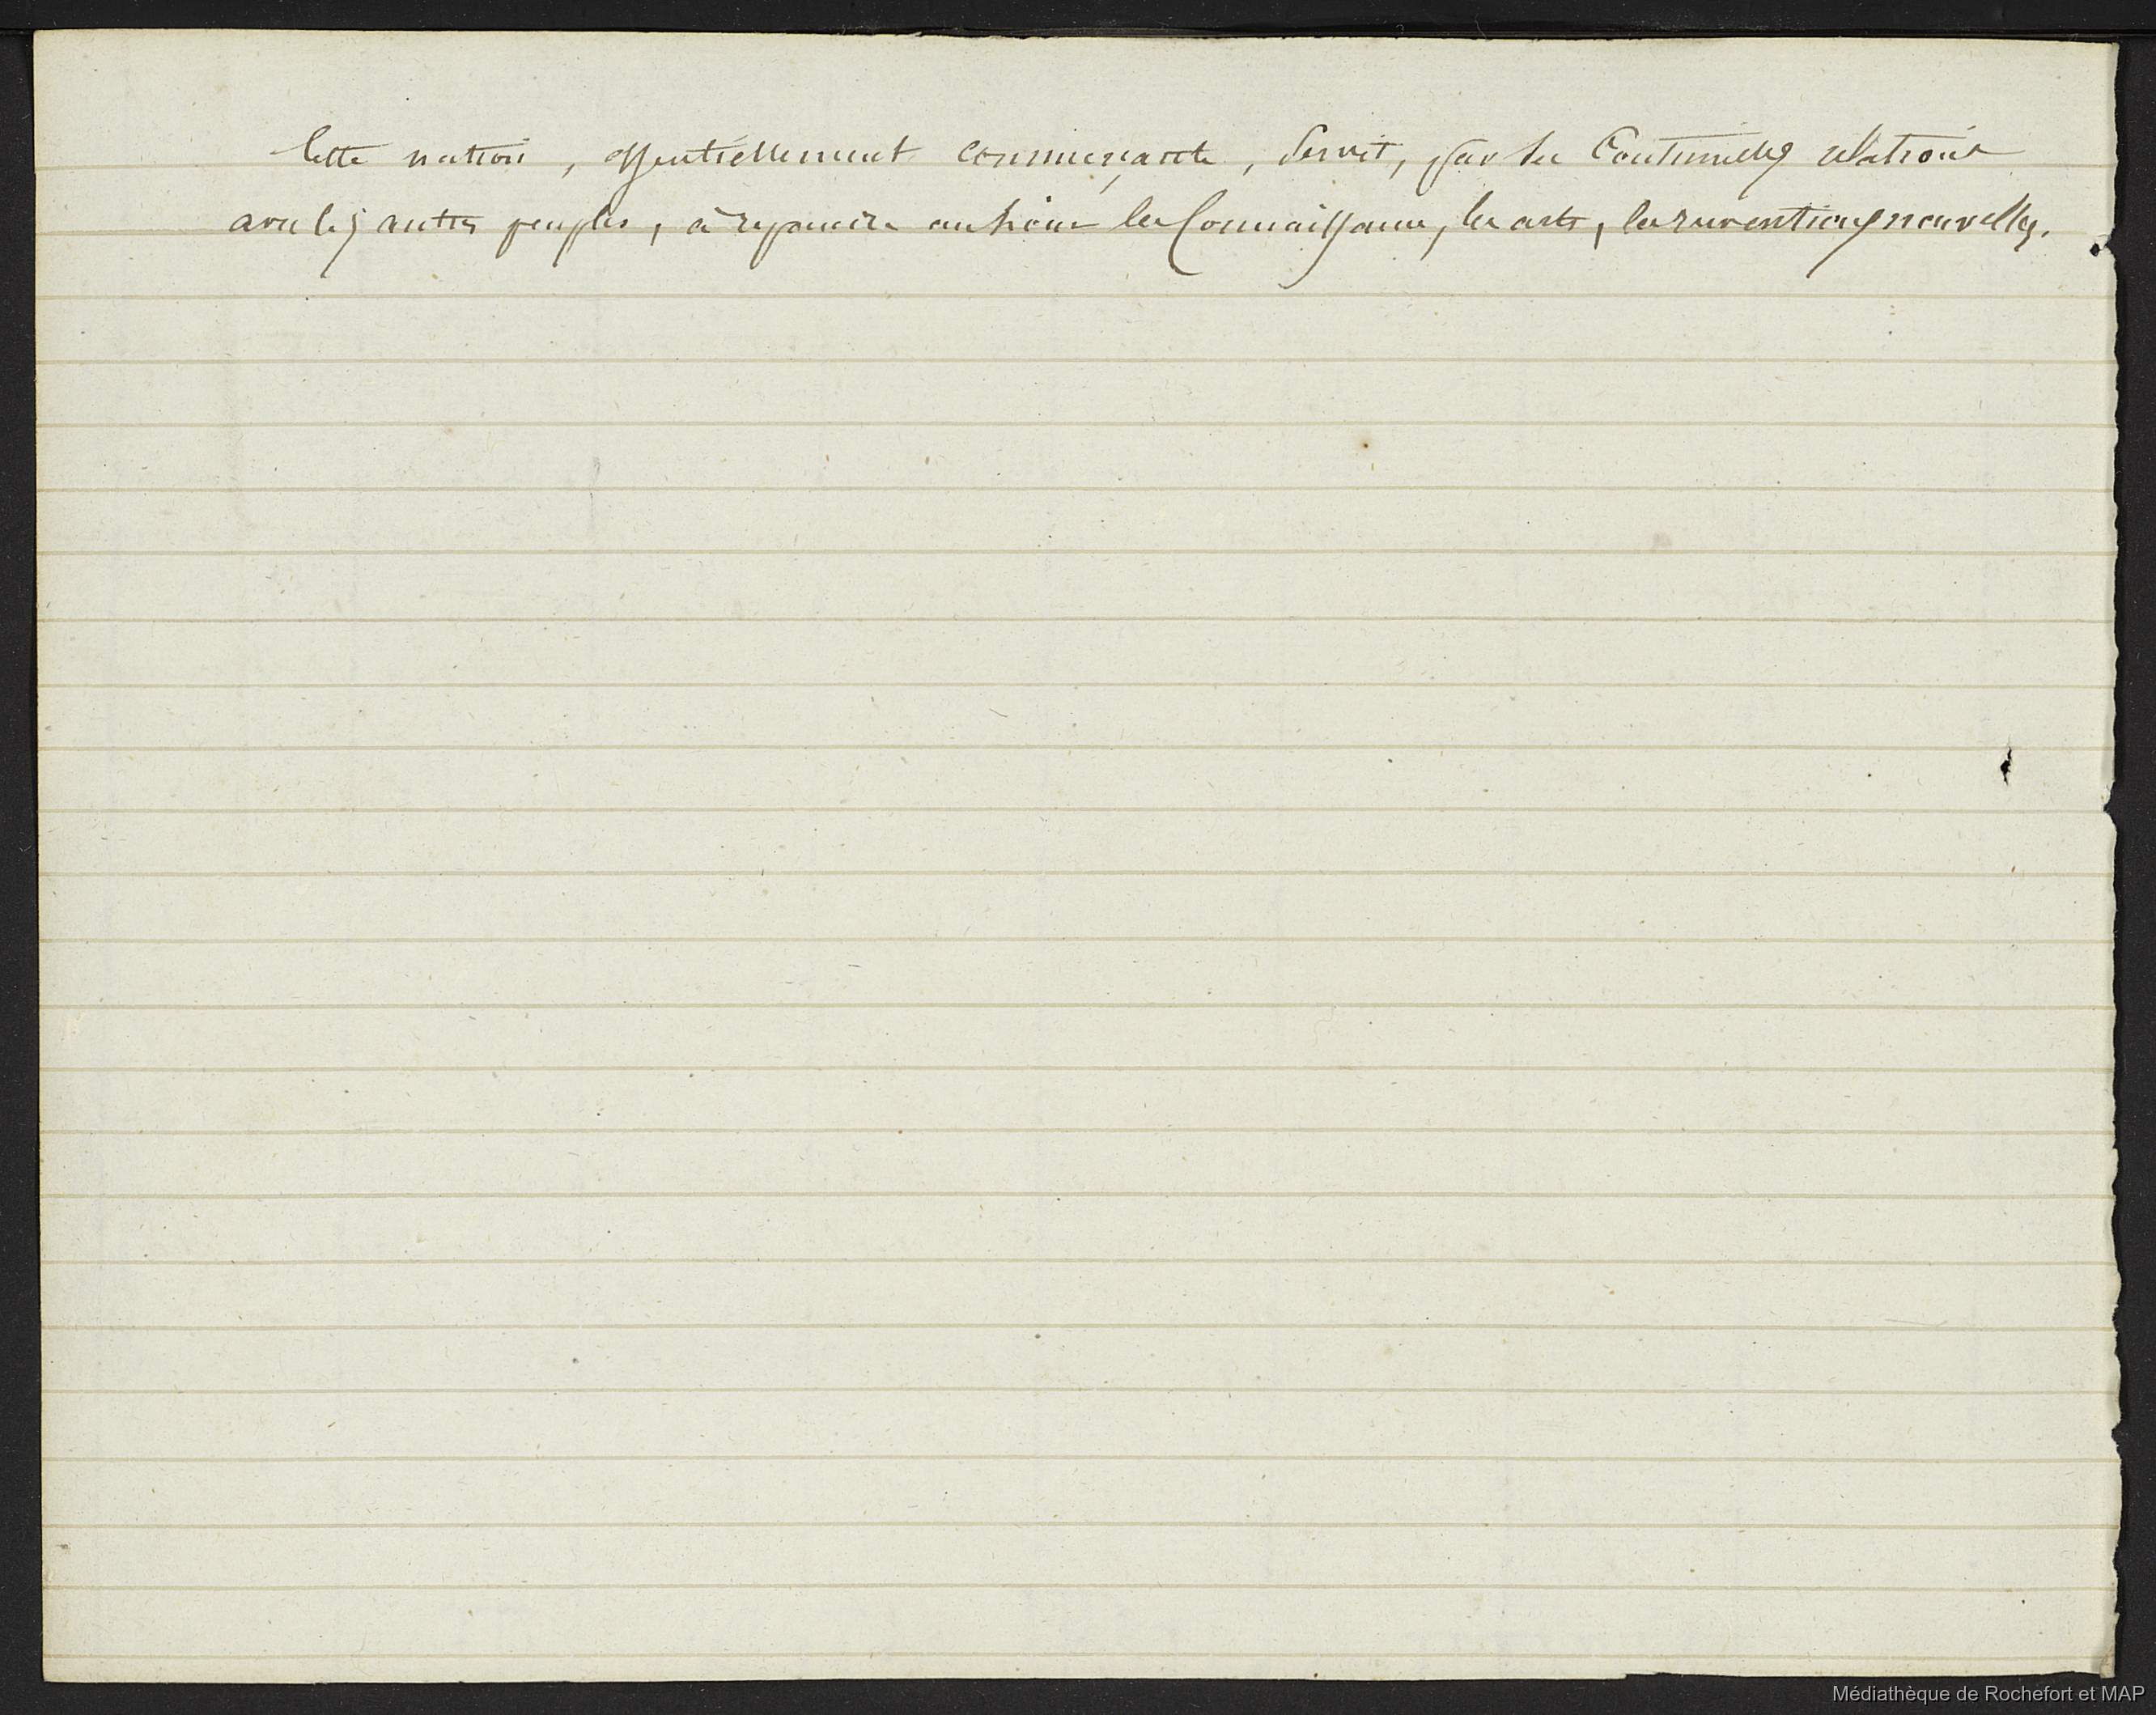 Cette nation, essentiellement commerçante, servit, par ses continuelles relations
avec les autres peuples, à répandre au loin les connaissances, les arts, les inventions nouvelles.
Médiathèque de Rochefort et MAP